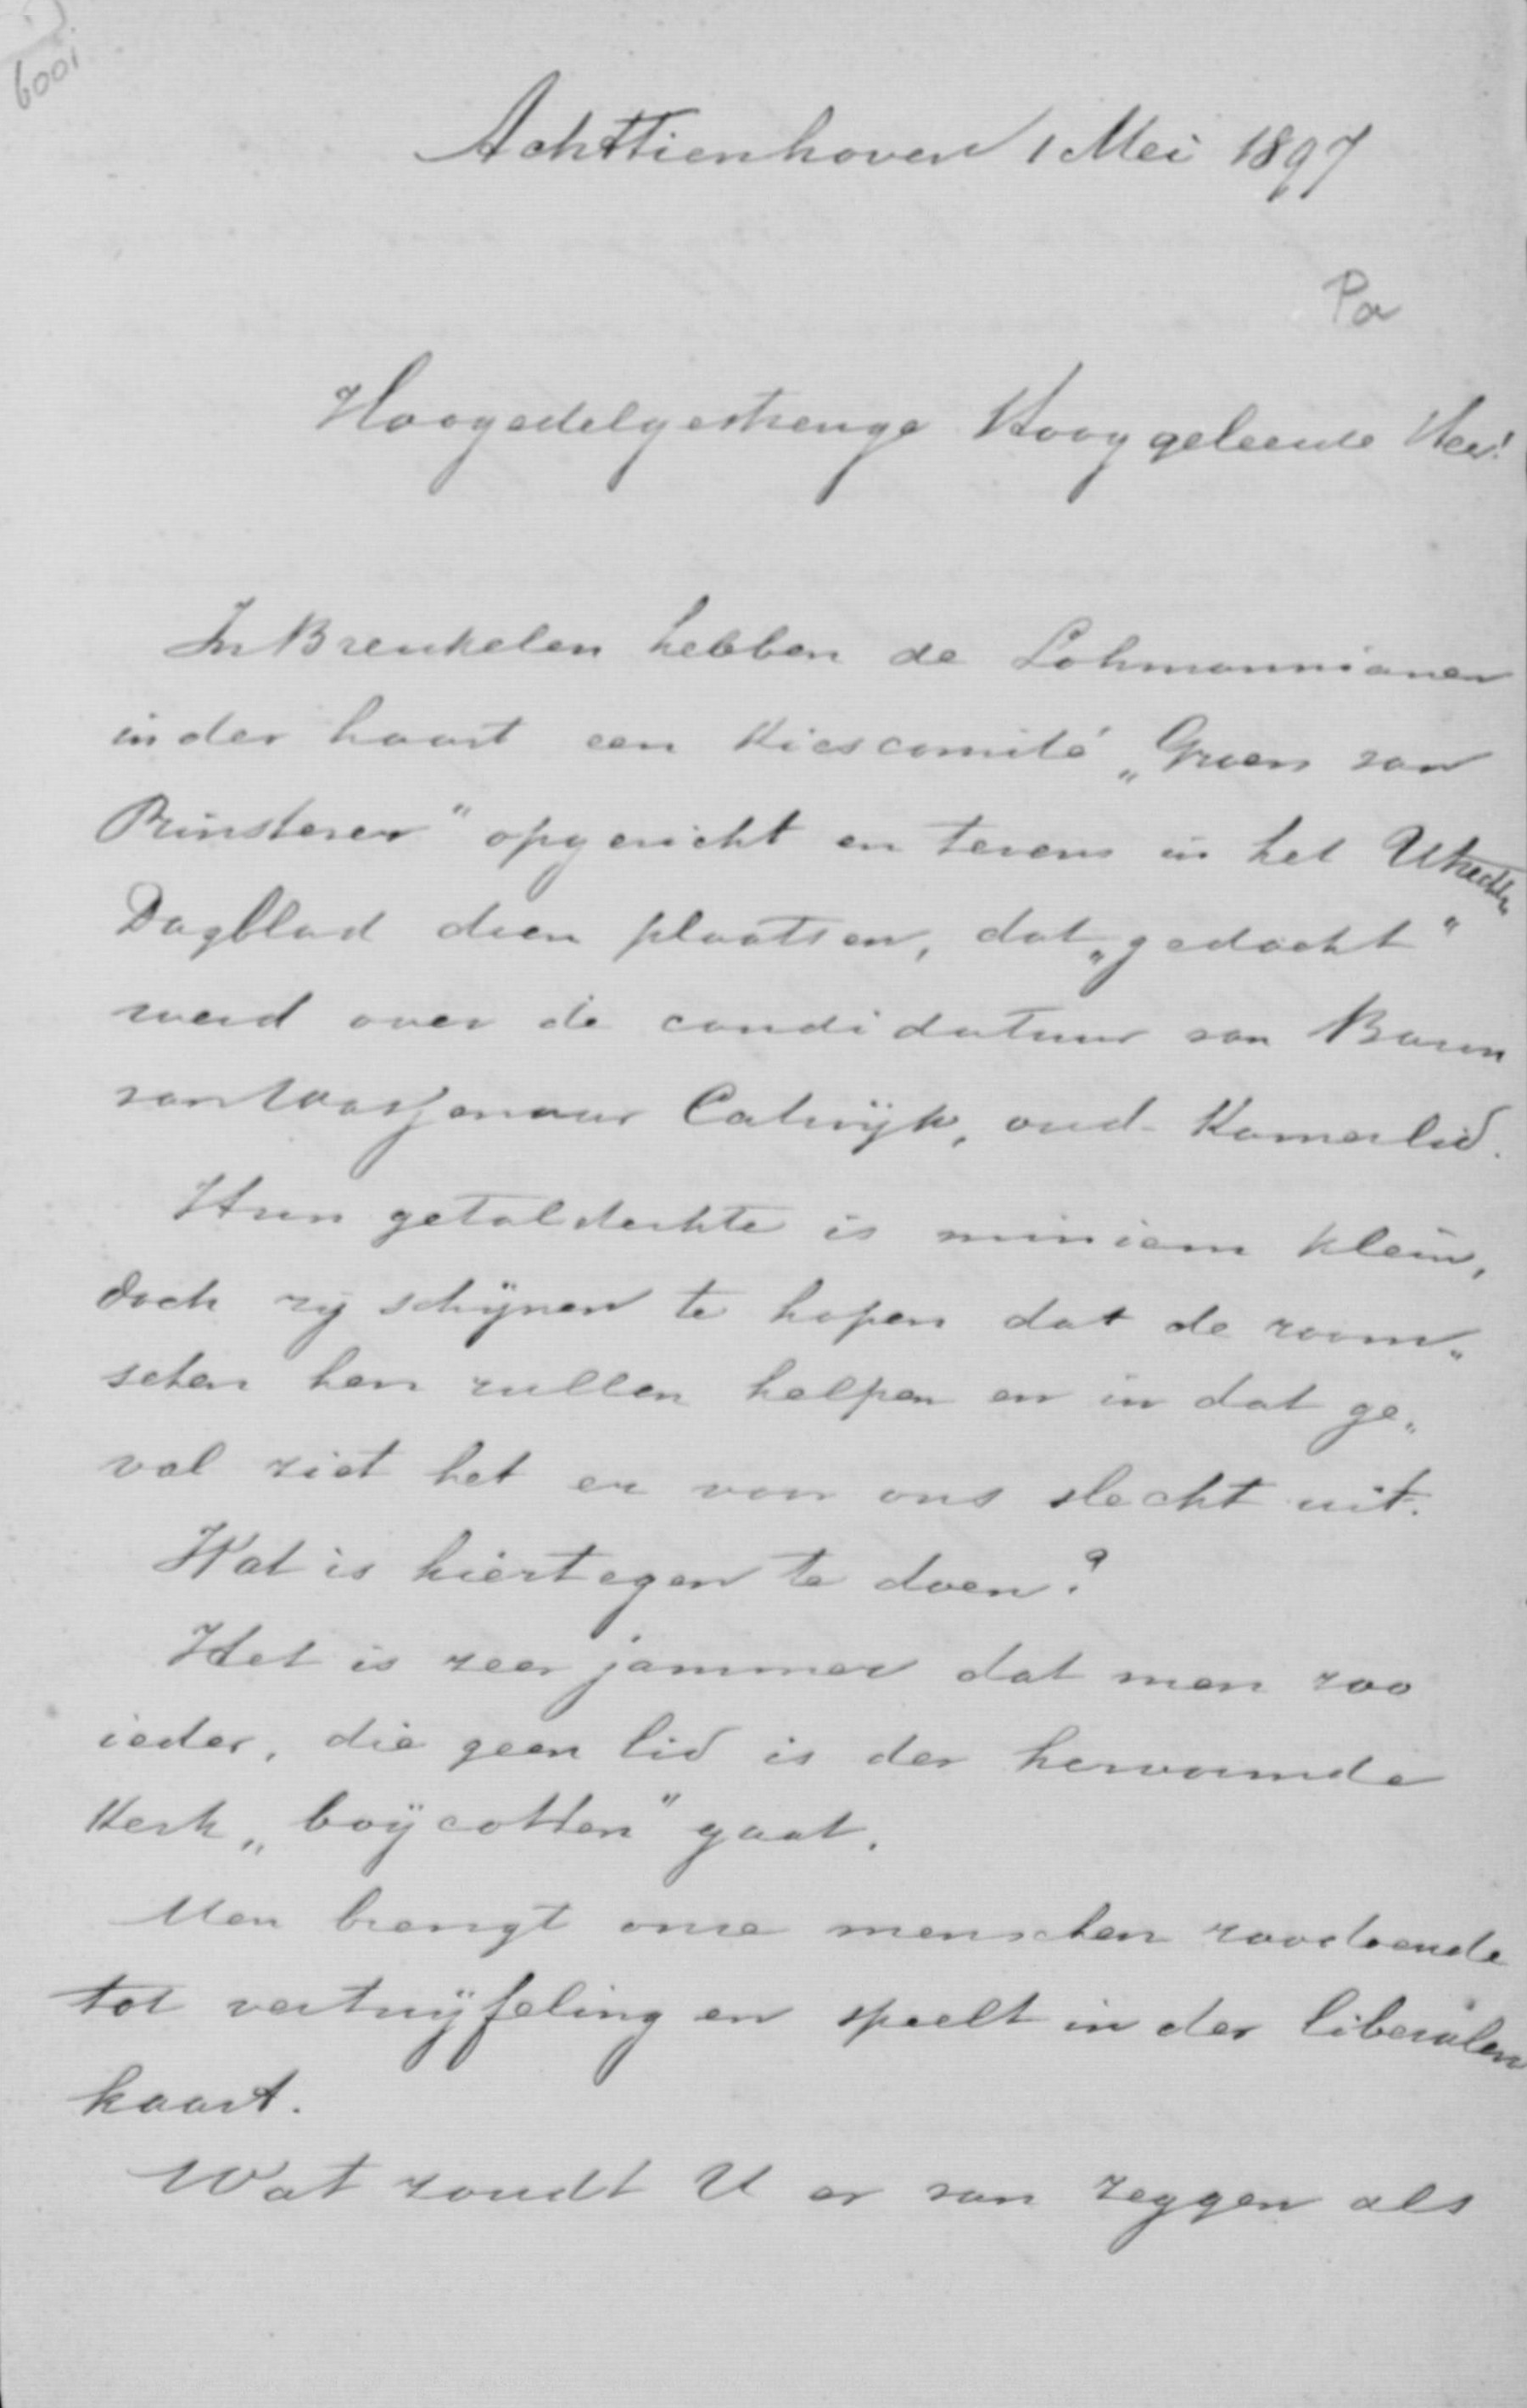 6001
Achttienhoven 1 Mei 1897
Pa
Hoogedelgestrenge Hooggeleerde Heer!
In Breukelen hebben de Lohmannianen
in der haast een Kiescomité „Groen van
Prinsterer" opgericht en tevens in het Utrechts
Dagblad doen plaatsen, dat „gedacht"
werd over de candidatuur van Baron
van Wassenaar Catwijk, oud-Kamerlid.
Hun getalsterkte is miniem klein,
doch zij schijnen te hopen dat de room„
schen hen zullen helpen en in dat ge„
val ziet het er voor ons slecht uit.
Wat is hiertegen te doen?
Het is zeer jammer dat men zoo
ieder, die geen lid is der hervormde
Kerk „boÿcotten" gaat.
Men brengt onze menschen zoodoende
tot vertwijfeling en speelt in der liberalen
kaart.
Wat zoudt U er van zeggen als